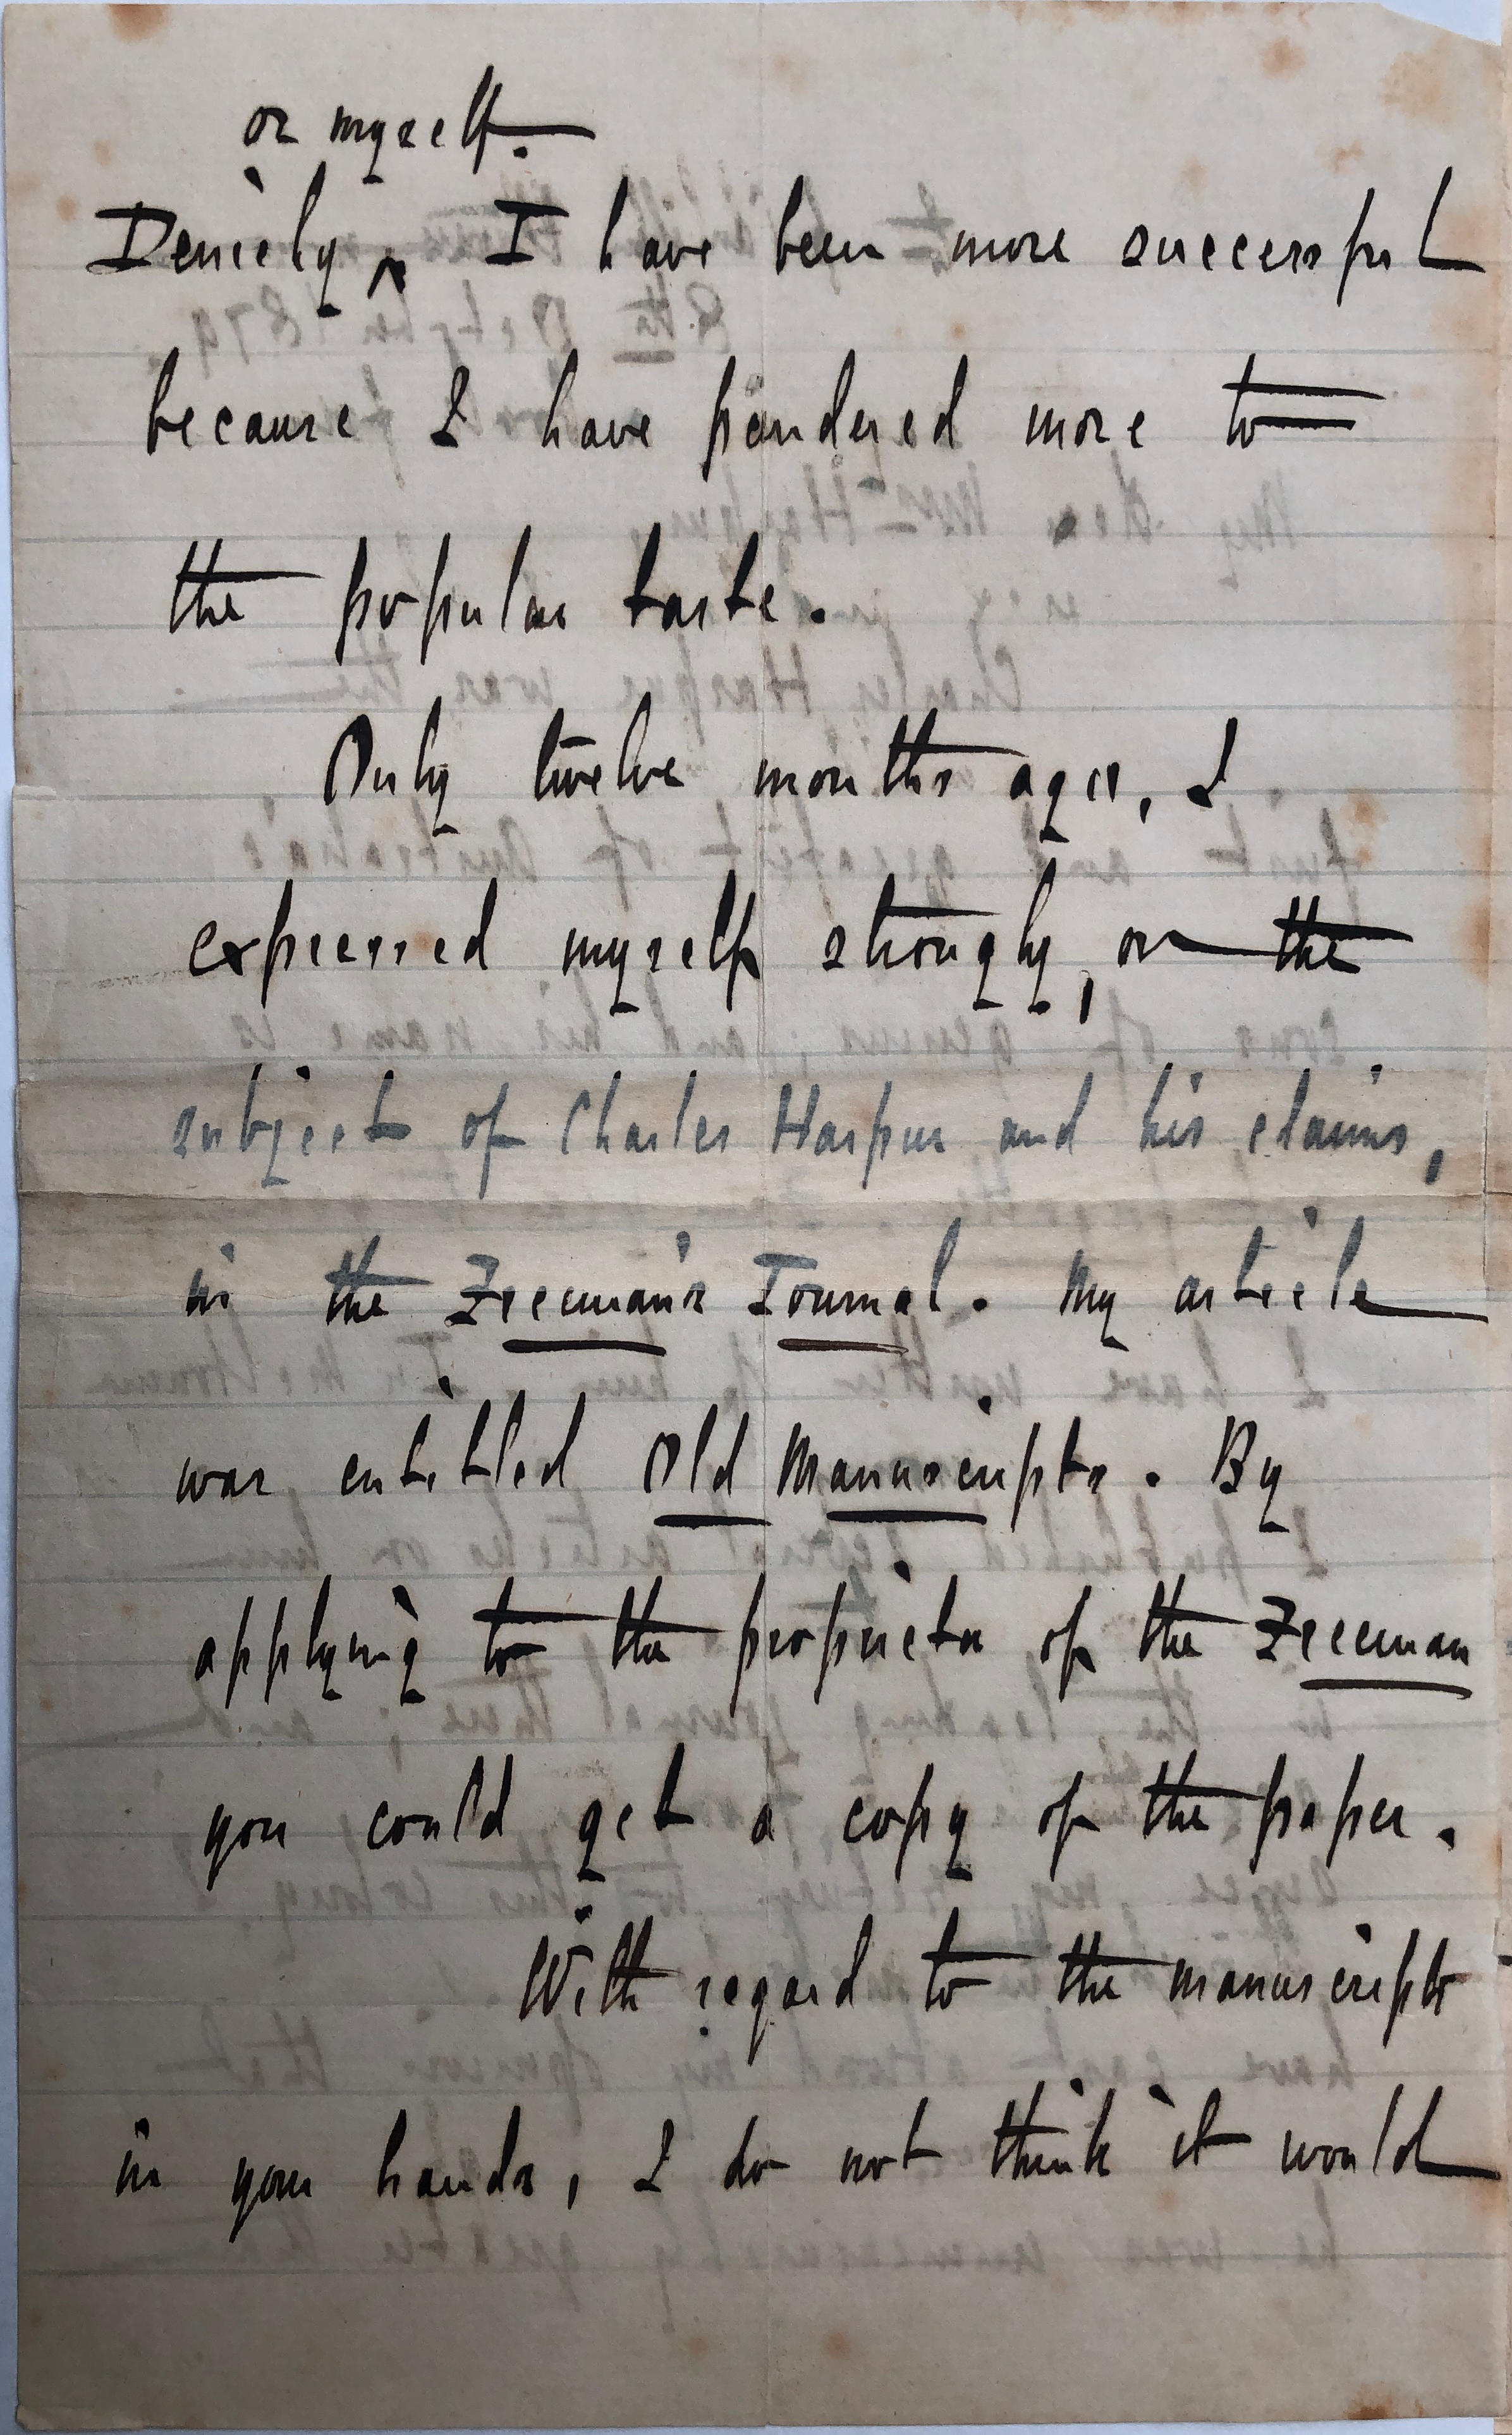 or myself.
Deniehy ^ I have been more successful
because I have pandered more to
the popular taste.
Only twelve months ago, I
expressed myself strongly, on the
subject of Charles Harpur and his claims,
in the Freeman's Journal. My article
was entitled Old Manuscripts. By
applying to the proprietor of the Freeman
you could get a copy of the paper.
With regard to the manuscripts
in your hands, I do not think it would